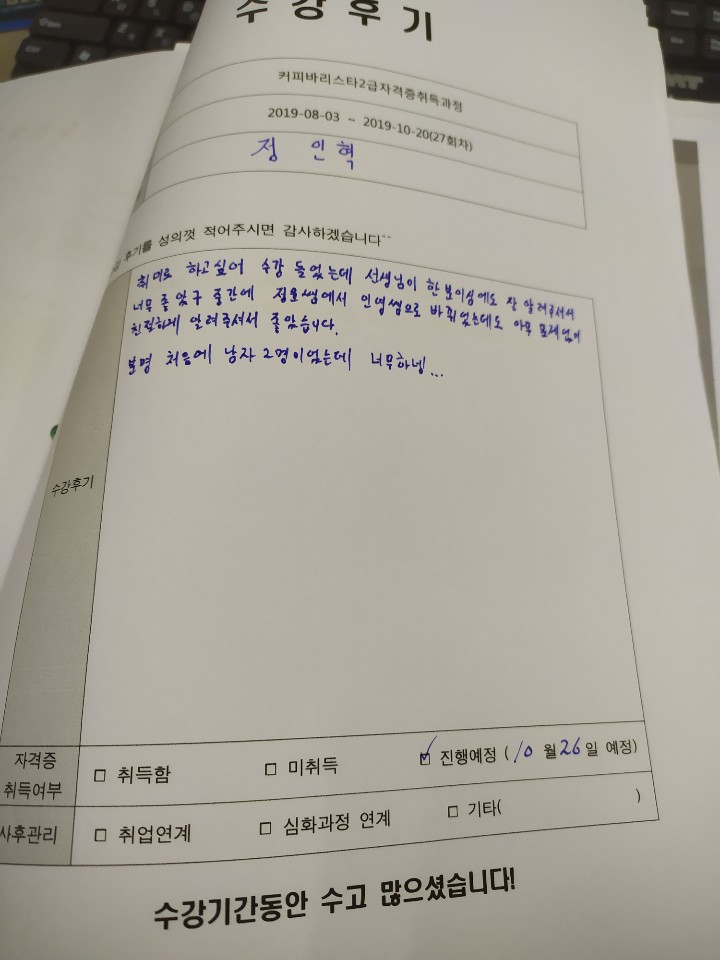 수 강 후 기
커피바리스타2급자격증취득과정
2019-08-03 ~ 2019-10-20(27회차)
정 인 혁
후기를 성의껏 적어주시면 감사하겠습니다^^
취미로 하고싶어 수강 들었는데 선생님이 한 분이심에도 잘 알려주셔서
너무 좋았구 중간에 쌤에서 인영쌤으로 바뀌었는데도 아무 문제없이
친절하게 알려주셔서 좋았습니다.
분명 처음에 남자 2명이었는데 너무하넹...
수강후기
자격증
취득여부
□ 취득함 □ 미취득 ☑ 진행예정 (10 월 26일 예정)
사후관리 □ 취업연계 □ 심화과정 연계 □ 기타( )
수강기간동안 수고 많으셨습니다!